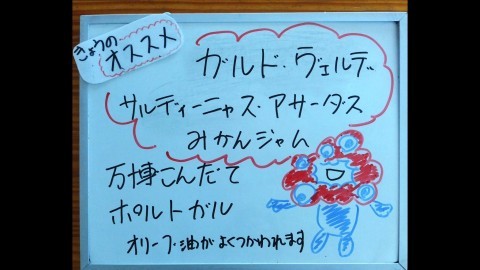 きょうの
オススメ
ガルド・ヴェルデ
サルディーニャス・アサーダス
みかんジャム
万博こんだて
ポルトガル
オリーブ油がよくつかわれます